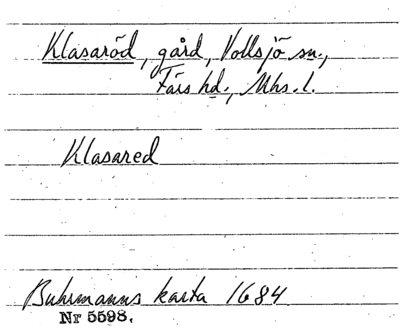 Klasaröd, gård, Vollsjö sn.,
Färs hd., Mhs. l.
Klasared
Buhrmanns karta 1684
Nr 5598.